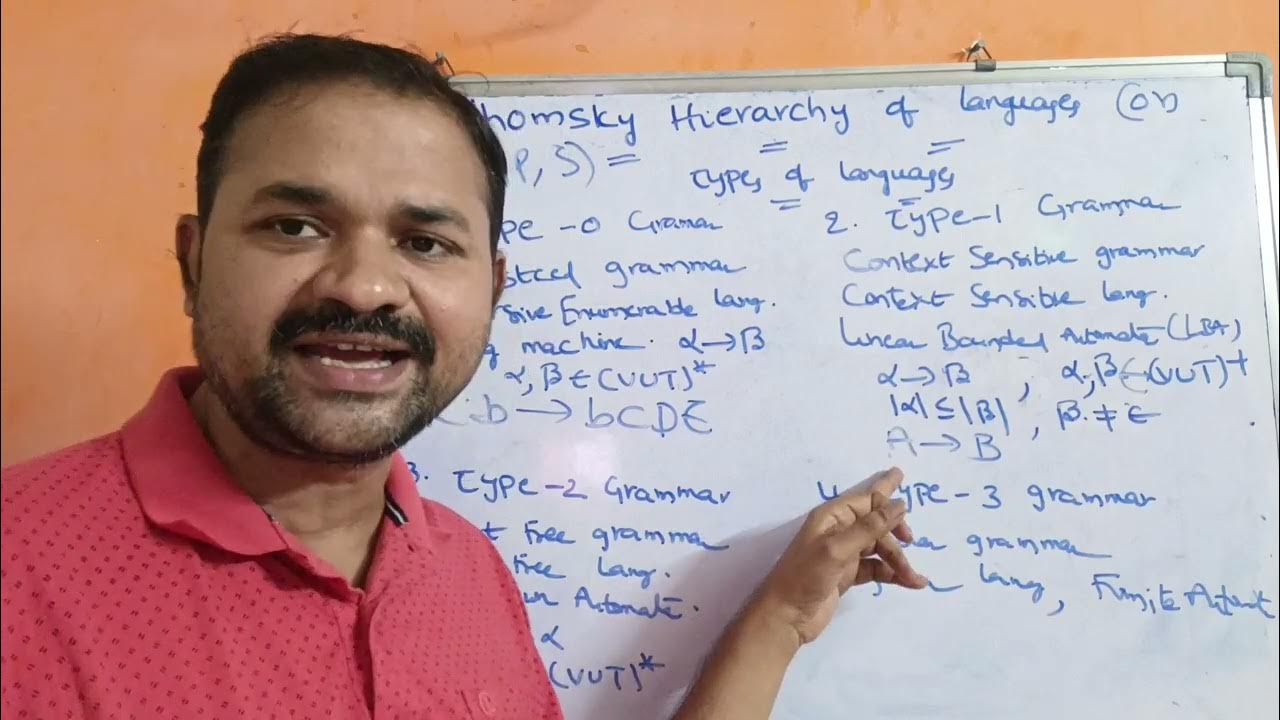 homsky Hierarchy of languages (or)
P, S) =
types of languages
pe -0 Gramar
sted grammar
sive Enumerable lang.
g machine. α→B
α, B ∈ (VUT)*
b → bCDE
2. Type-1 Grammar
Context Sensitive grammar
Context Sensible lang.
Linear Bounded Automate (LBA)
α→B , α,B∈(VUT)+
|α| ≤ |B| , B ≠ ∈
A → B
3. Type-2 Grammar
t Free grammar
Free lang.
wn Automate.
α
(VUT)*
4. Type-3 grammar
grammar
lang, Finite Automt